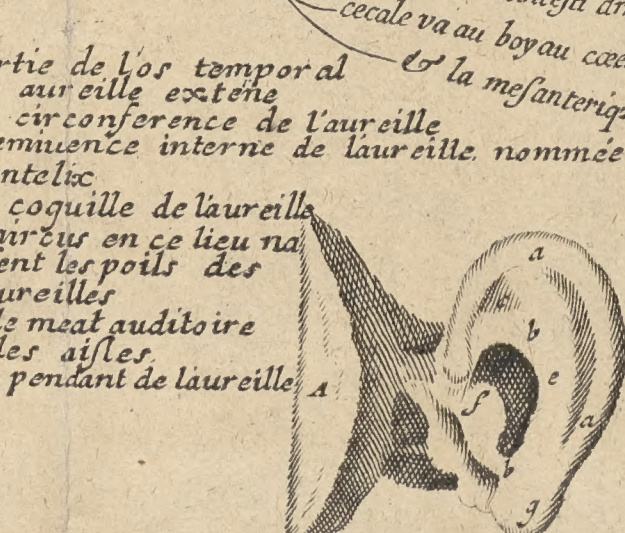 cecale va au boyau cœe
& la mesanteriq
rtie de l'os temporal
aureille extene
circonference de l'aureille
eminence interne de laureille. nommée
ntelix
coquille de laureille
aircus en ce lieu na
ent les poils des
ureilles
le meat auditoire
les aisles.
pendant de laureille
A
a
c
b
e
f
a
b
g